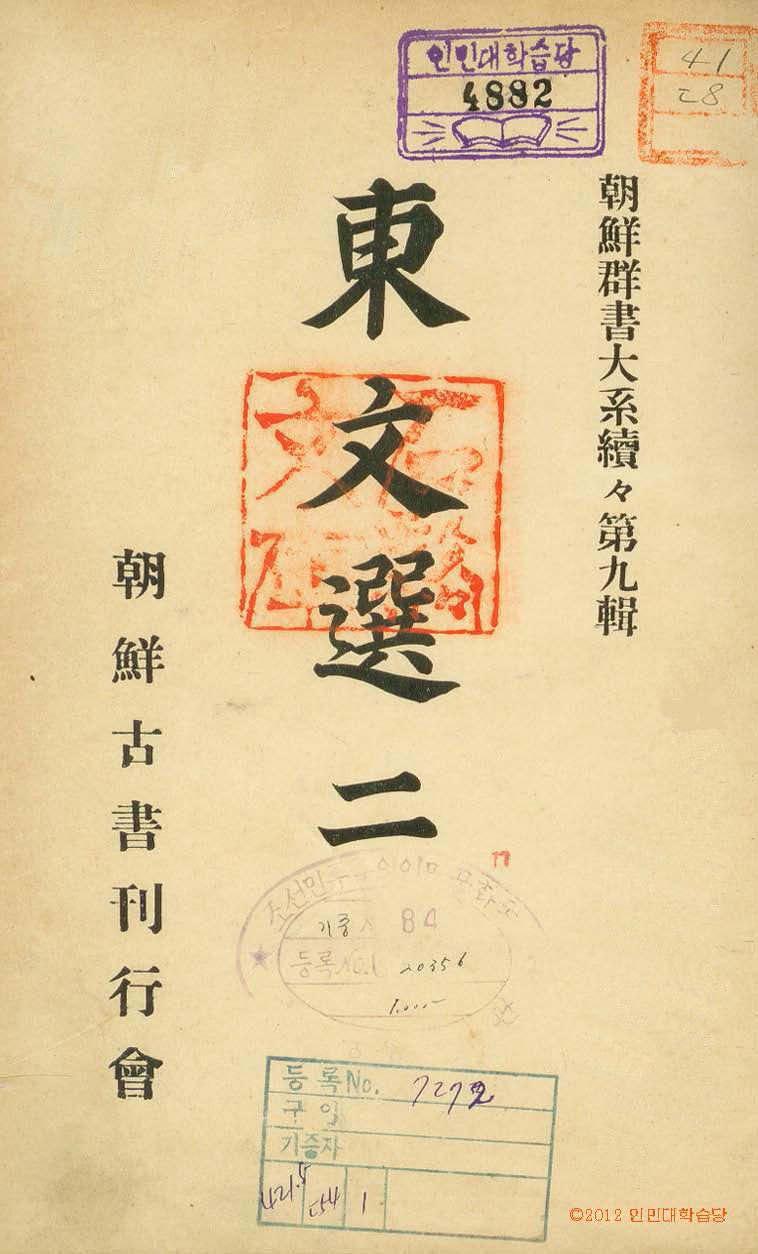 인민대학습당
4882
41
ㄷ8
朝鮮群書大系續々第九輯
東文選二
朝鮮古書刊行會
84
등록No.
20356
1.000-
등록No. 7272
구입
기증자
421.5
ㄷ54
1
©2012 인민대학습당